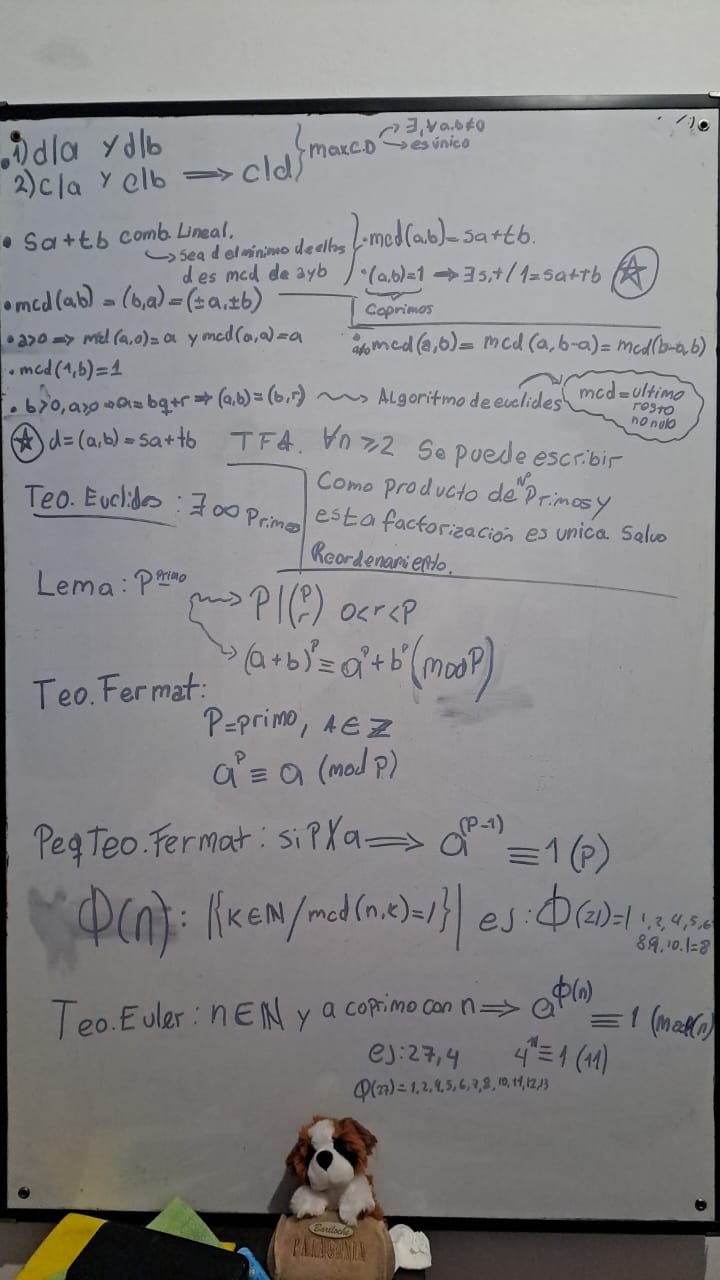 1) d|a y d|b
2) c|a y c|b ⟹ c|d } max C.D → ∃, ∀ a.b≠0
→ es único
• sa+tb comb. Lineal.
→ sea d el mínimo de ellos
d es mcd de a y b
} • mcd(a,b) = sa+tb.
• (a,b)=1 ⟹ ∃ s,t / 1=sa+tb ☆
Coprimos
• mcd(a,b) = (b,a) = (±a,±b)
• a>0 ⟹ mcd(a,0)=a y mcd(a,a)=a
mcd(a,b) = mcd(a,b-a) = mcd(b-a,b)
• mcd(1,b)=1
• b>0, a>0 ⟹ a=bq+r ⟹ (a,b)=(b,r) ⇝ Algoritmo de euclides
mcd = ultimo
resto
no nulo
☆ d=(a,b)=sa+tb
TFA. ∀n ≥2 Se puede escribir
Como producto de Nº Primos y
esta factorización es unica. Salvo
Reordenamiento.
Teo. Euclides : ∃ ∞ Primos
Lema: P primo
⇝ P | (p r) 0<r<P
→ (a+b)^p ≡ a^p + b^p (mod P)
Teo. Fermat:
P=primo, A ∈ ℤ
a^p ≡ a (mod p)
Peq Teo. Fermat: si P∤a ⟹ a^(P-1) ≡ 1 (p)
Φ(n): |{K∈ℕ/mcd(n,k)=1}| ej: Φ(21)=| 1,2,4,5,6
8,9,10.|=8
Teo. Euler: n∈ℕ y a coprimo con n ⟹ a^Φ(n) ≡ 1 (mod(n)
ej: 27,4 4^11 ≡ 1 (11)
Φ(27)= 1,2,4,5,6,7,8,10,11,12,13
Bariloche
PATAGONIA